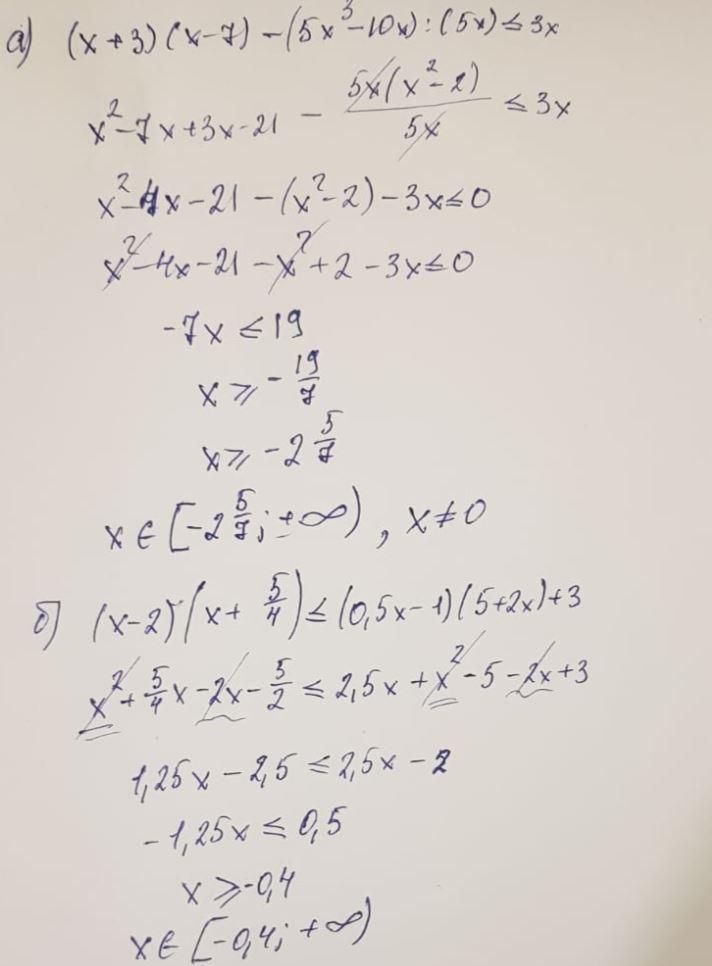 а) (x+3)(x-7)-(5x³-10x):(5x)≤3x
x²-7x+3x-21 - 5x(x²-2)/5x ≤3x
x²-4x-21-(x²-2)-3x≤0
x²-4x-21-x²+2-3x≤0
-7x≤19
x⩾-19/7
x⩾-2 5/7
x∈[-2 5/7; +∞), x≠0
б) (x-2)(x+5/4)≤(0,5x-1)(5+2x)+3
x²+5/4x-2x-5/2≤2,5x+x²-5-2x+3
1,25x-2,5≤2,5x-2
-1,25x≤0,5
x⩾-0,4
x∈[-0,4; +∞)